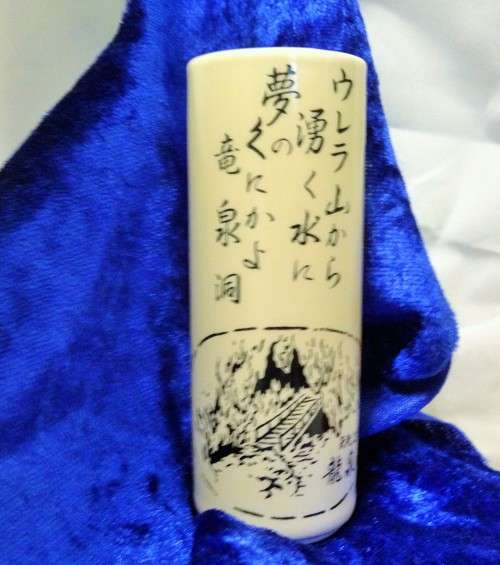 ウレラ山から
湧く水に
夢の
くにかよ
竜泉洞
龍泉